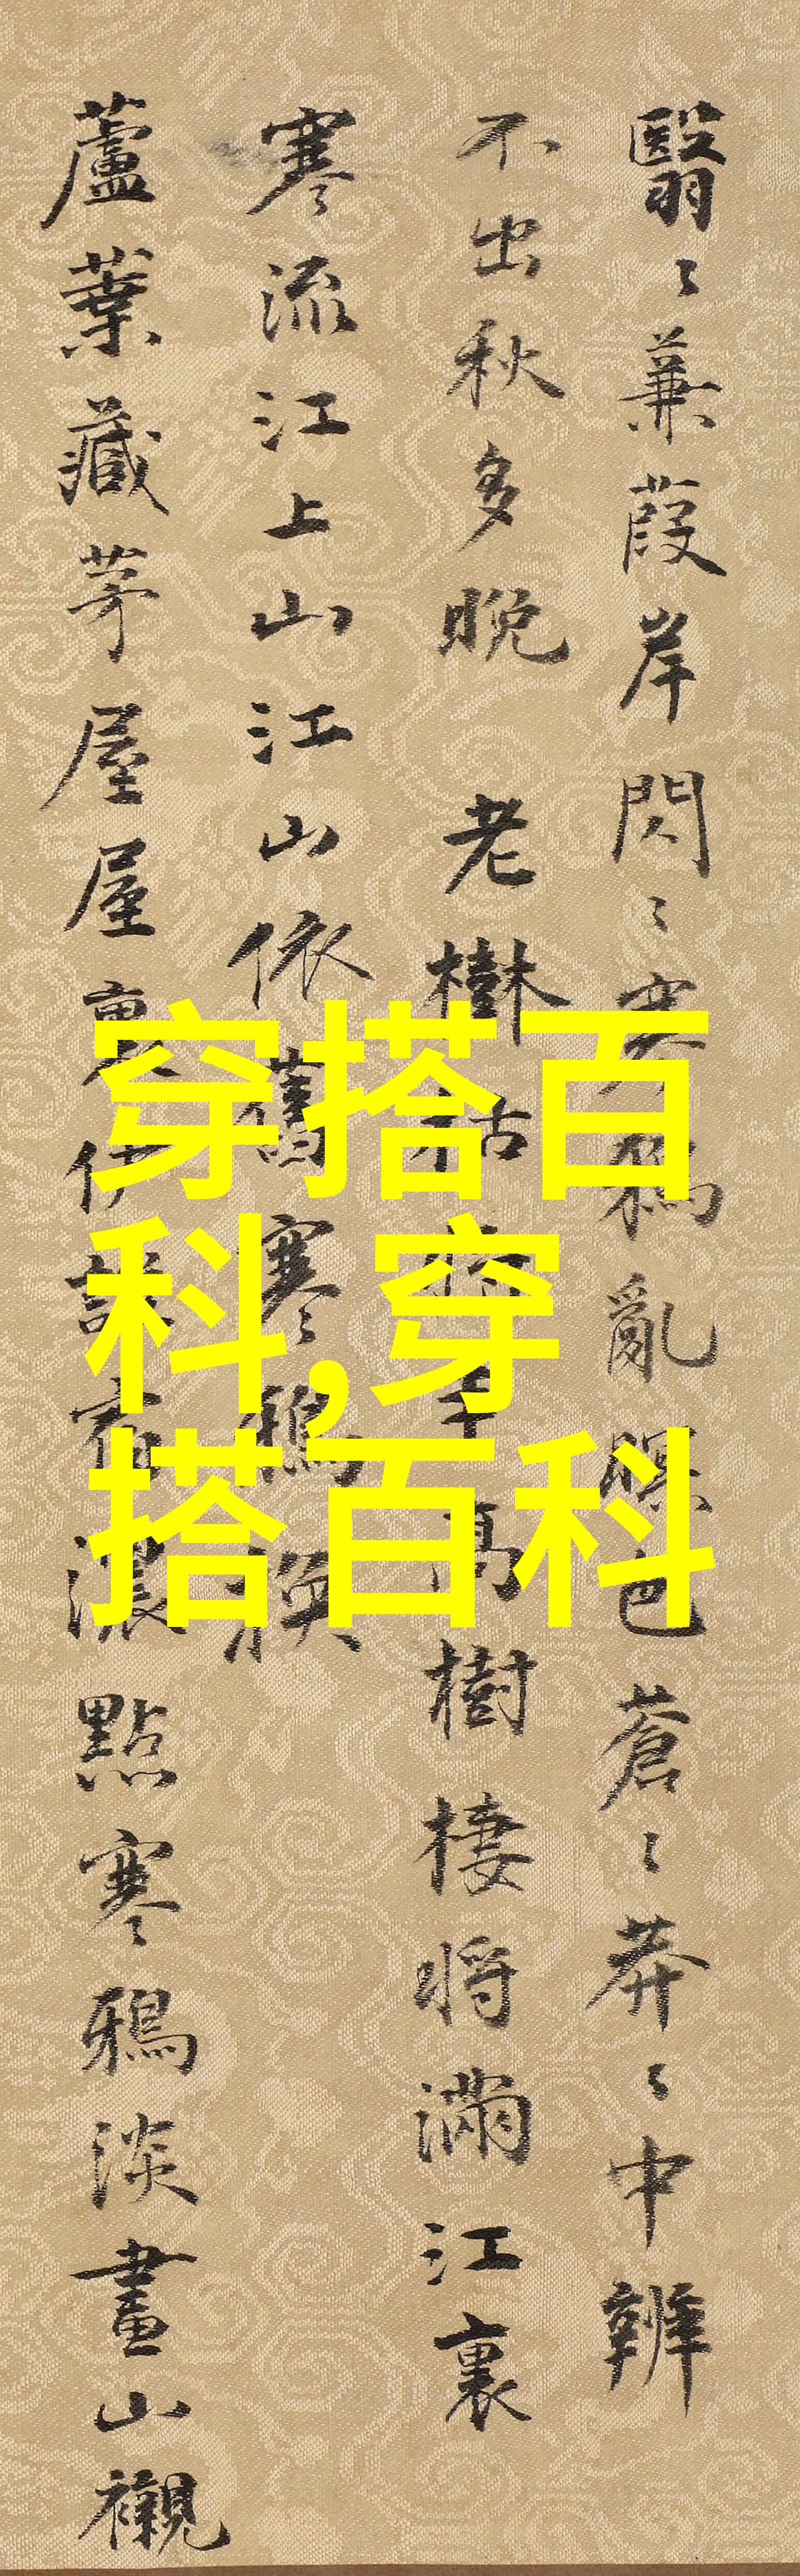 翳〻蒹葭岸閃〻寒鴉亂暝色蒼〻莽〻中辨
不出秋多晚 老樹枯將半高樹棲將滿江裏
寒流江上山江山依舊寒〻鴉換
蘆葉藏茅屋屋裏伊誰宿濃點寒鴉淡畫山襯
穿搭百
科,穿
搭百科